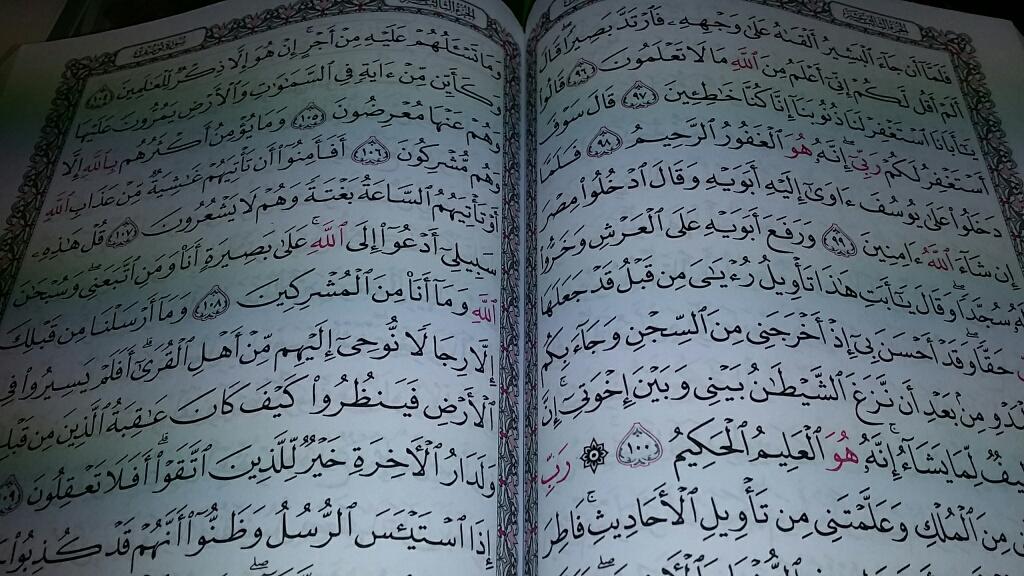 فَلَمَّآ أَن جَآءَ ٱلْبَشِيرُ أَلْقَىٰهُ عَلَىٰ وَجْهِهِۦ فَٱرْتَدَّ بَصِيرًا قَالَ
أَلَمْ أَقُل لَّكُمْ إِنِّىٓ أَعْلَمُ مِنَ ٱللَّهِ مَا لَا تَعْلَمُونَ ٩٦ قَالُوا۟
يَٰٓأَبَانَا ٱسْتَغْفِرْ لَنَا ذُنُوبَنَآ إِنَّا كُنَّا خَٰطِـِٔينَ ٩٧ قَالَ سَوْفَ
أَسْتَغْفِرُ لَكُمْ رَبِّىٓ إِنَّهُۥ هُوَ ٱلْغَفُورُ ٱلرَّحِيمُ ٩٨ فَلَمَّا
دَخَلُوا۟ عَلَىٰ يُوسُفَ ءَاوَىٰٓ إِلَيْهِ أَبَوَيْهِ وَقَالَ ٱدْخُلُوا۟ مِصْرَ
إِن شَآءَ ٱللَّهُ ءَامِنِينَ ٩٩ وَرَفَعَ أَبَوَيْهِ عَلَى ٱلْعَرْشِ وَخَرُّوا۟
سُجَّدًا وَقَالَ يَٰٓأَبَتِ هَٰذَا تَأْوِيلُ رُءْيَٰىَ مِن قَبْلُ قَدْ جَعَلَهَا
حَقًّا وَقَدْ أَحْسَنَ بِىٓ إِذْ أَخْرَجَنِى مِنَ ٱلسِّجْنِ وَجَآءَ بِكُم
مِنۢ بَعْدِ أَن نَّزَغَ ٱلشَّيْطَٰنُ بَيْنِى وَبَيْنَ إِخْوَتِىٓ إِنَّ
لِّمَا يَشَآءُ إِنَّهُۥ هُوَ ٱلْعَلِيمُ ٱلْحَكِيمُ ١٠٠ ۞ رَبِّ
مِنَ ٱلْمُلْكِ وَعَلَّمْتَنِى مِن تَأْوِيلِ ٱلْأَحَادِيثِ فَاطِرَ
وَمَا تَسْـَٔلُهُمْ عَلَيْهِ مِنْ أَجْرٍ إِنْ هُوَ إِلَّا ذِكْرٌ لِّلْعَٰلَمِينَ ١٠٤
وَكَأَيِّن مِّنْ ءَايَةٍ فِى ٱلسَّمَٰوَٰتِ وَٱلْأَرْضِ يَمُرُّونَ عَلَيْهَا
وَهُمْ عَنْهَا مُعْرِضُونَ ١٠٥ وَمَا يُؤْمِنُ أَكْثَرُهُم بِٱللَّهِ إِلَّا
وَهُم مُّشْرِكُونَ ١٠٦ أَفَأَمِنُوٓا۟ أَن تَأْتِيَهُمْ غَٰشِيَةٌ مِّنْ عَذَابِ ٱللَّهِ
أَوْ تَأْتِيَهُمُ ٱلسَّاعَةُ بَغْتَةً وَهُمْ لَا يَشْعُرُونَ ١٠٧ قُلْ هَٰذِهِۦ
سَبِيلِىٓ أَدْعُوٓا۟ إِلَى ٱللَّهِ عَلَىٰ بَصِيرَةٍ أَنَا۠ وَمَنِ ٱتَّبَعَنِى وَسُبْحَٰنَ
ٱللَّهِ وَمَآ أَنَا۠ مِنَ ٱلْمُشْرِكِينَ ١٠٨ وَمَآ أَرْسَلْنَا مِن قَبْلِكَ
إِلَّا رِجَالًا نُّوحِىٓ إِلَيْهِم مِّنْ أَهْلِ ٱلْقُرَىٰٓ أَفَلَمْ يَسِيرُوا۟ فِى
ٱلْأَرْضِ فَيَنظُرُوا۟ كَيْفَ كَانَ عَٰقِبَةُ ٱلَّذِينَ مِن قَبْلِ
وَلَدَارُ ٱلْـَٔاخِرَةِ خَيْرٌ لِّلَّذِينَ ٱتَّقَوْا۟ أَفَلَا تَعْقِلُونَ ١٠٩
إِذَا ٱسْتَيْـَٔسَ ٱلرُّسُلُ وَظَنُّوٓا۟ أَنَّهُمْ قَدْ كُذِبُوا۟